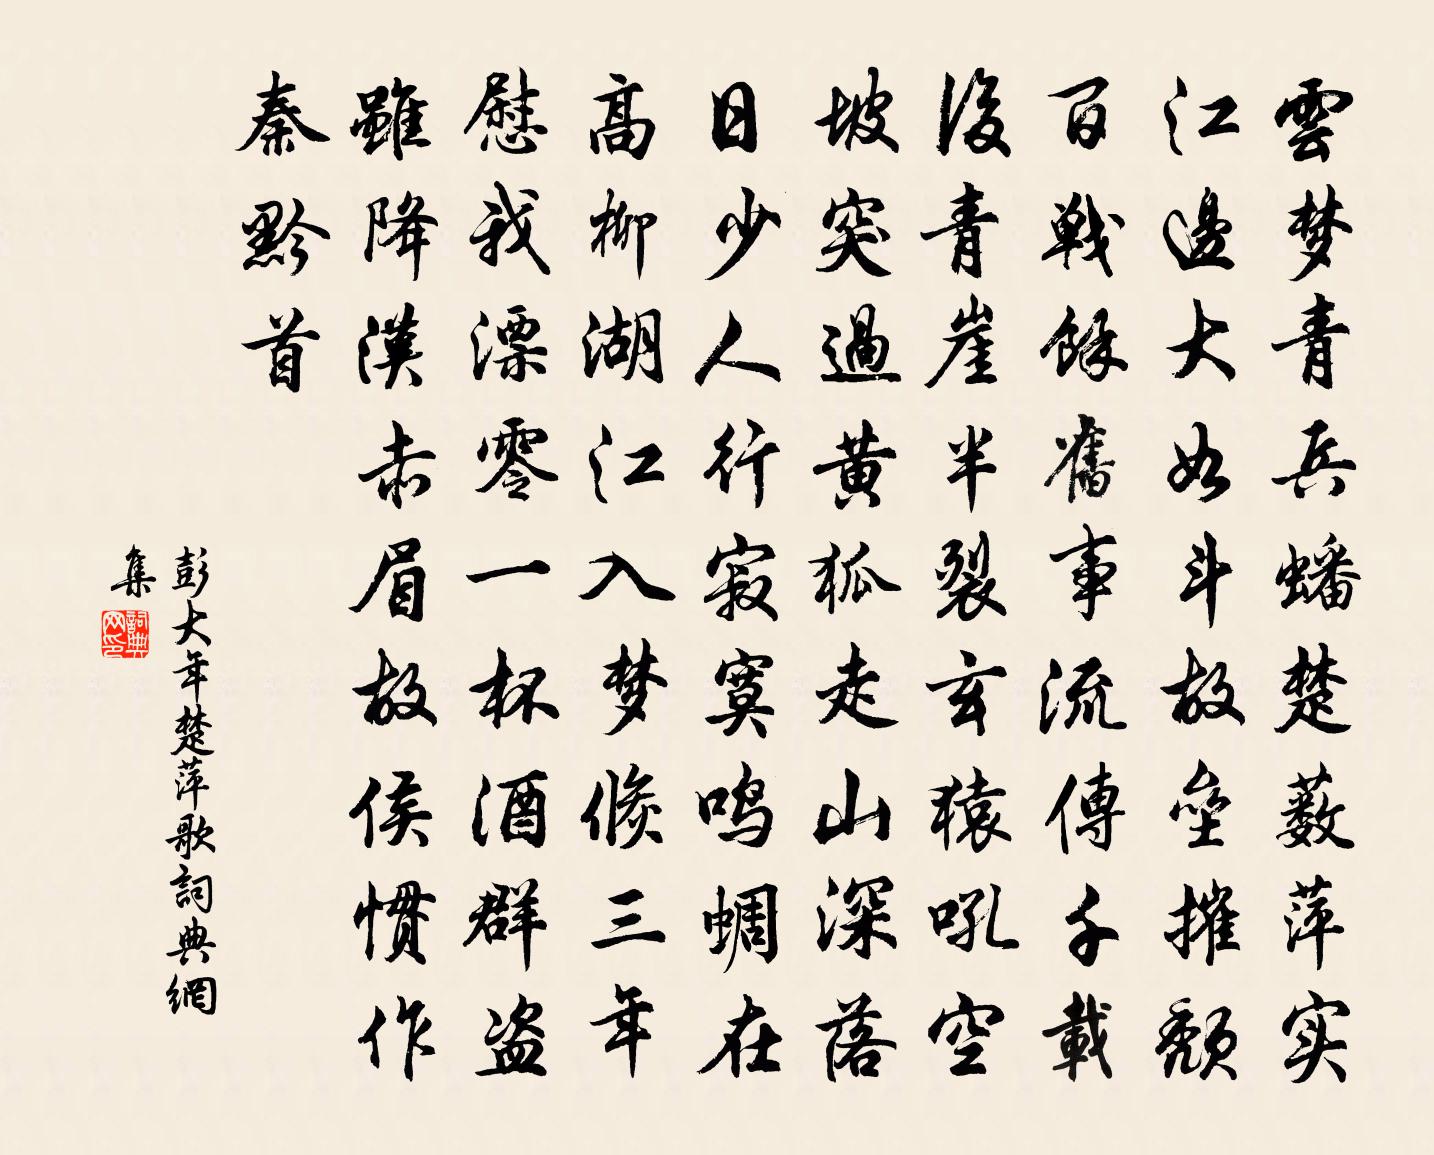 雲梦青兵蟠楚薮萍实
江邊大如斗故壘摧頹
百戦餘舊事流傳千載
後青崖半裂玄猿吼空
坡突過黄狐走山深落
日少人行寂寞鸣蜩在
高柳湖江入梦倐三年
慰我漂零一杯酒群盗
雖降漢赤眉故侯慣作
秦黔首
彭大年楚萍歌詞典網
集
詞典網印